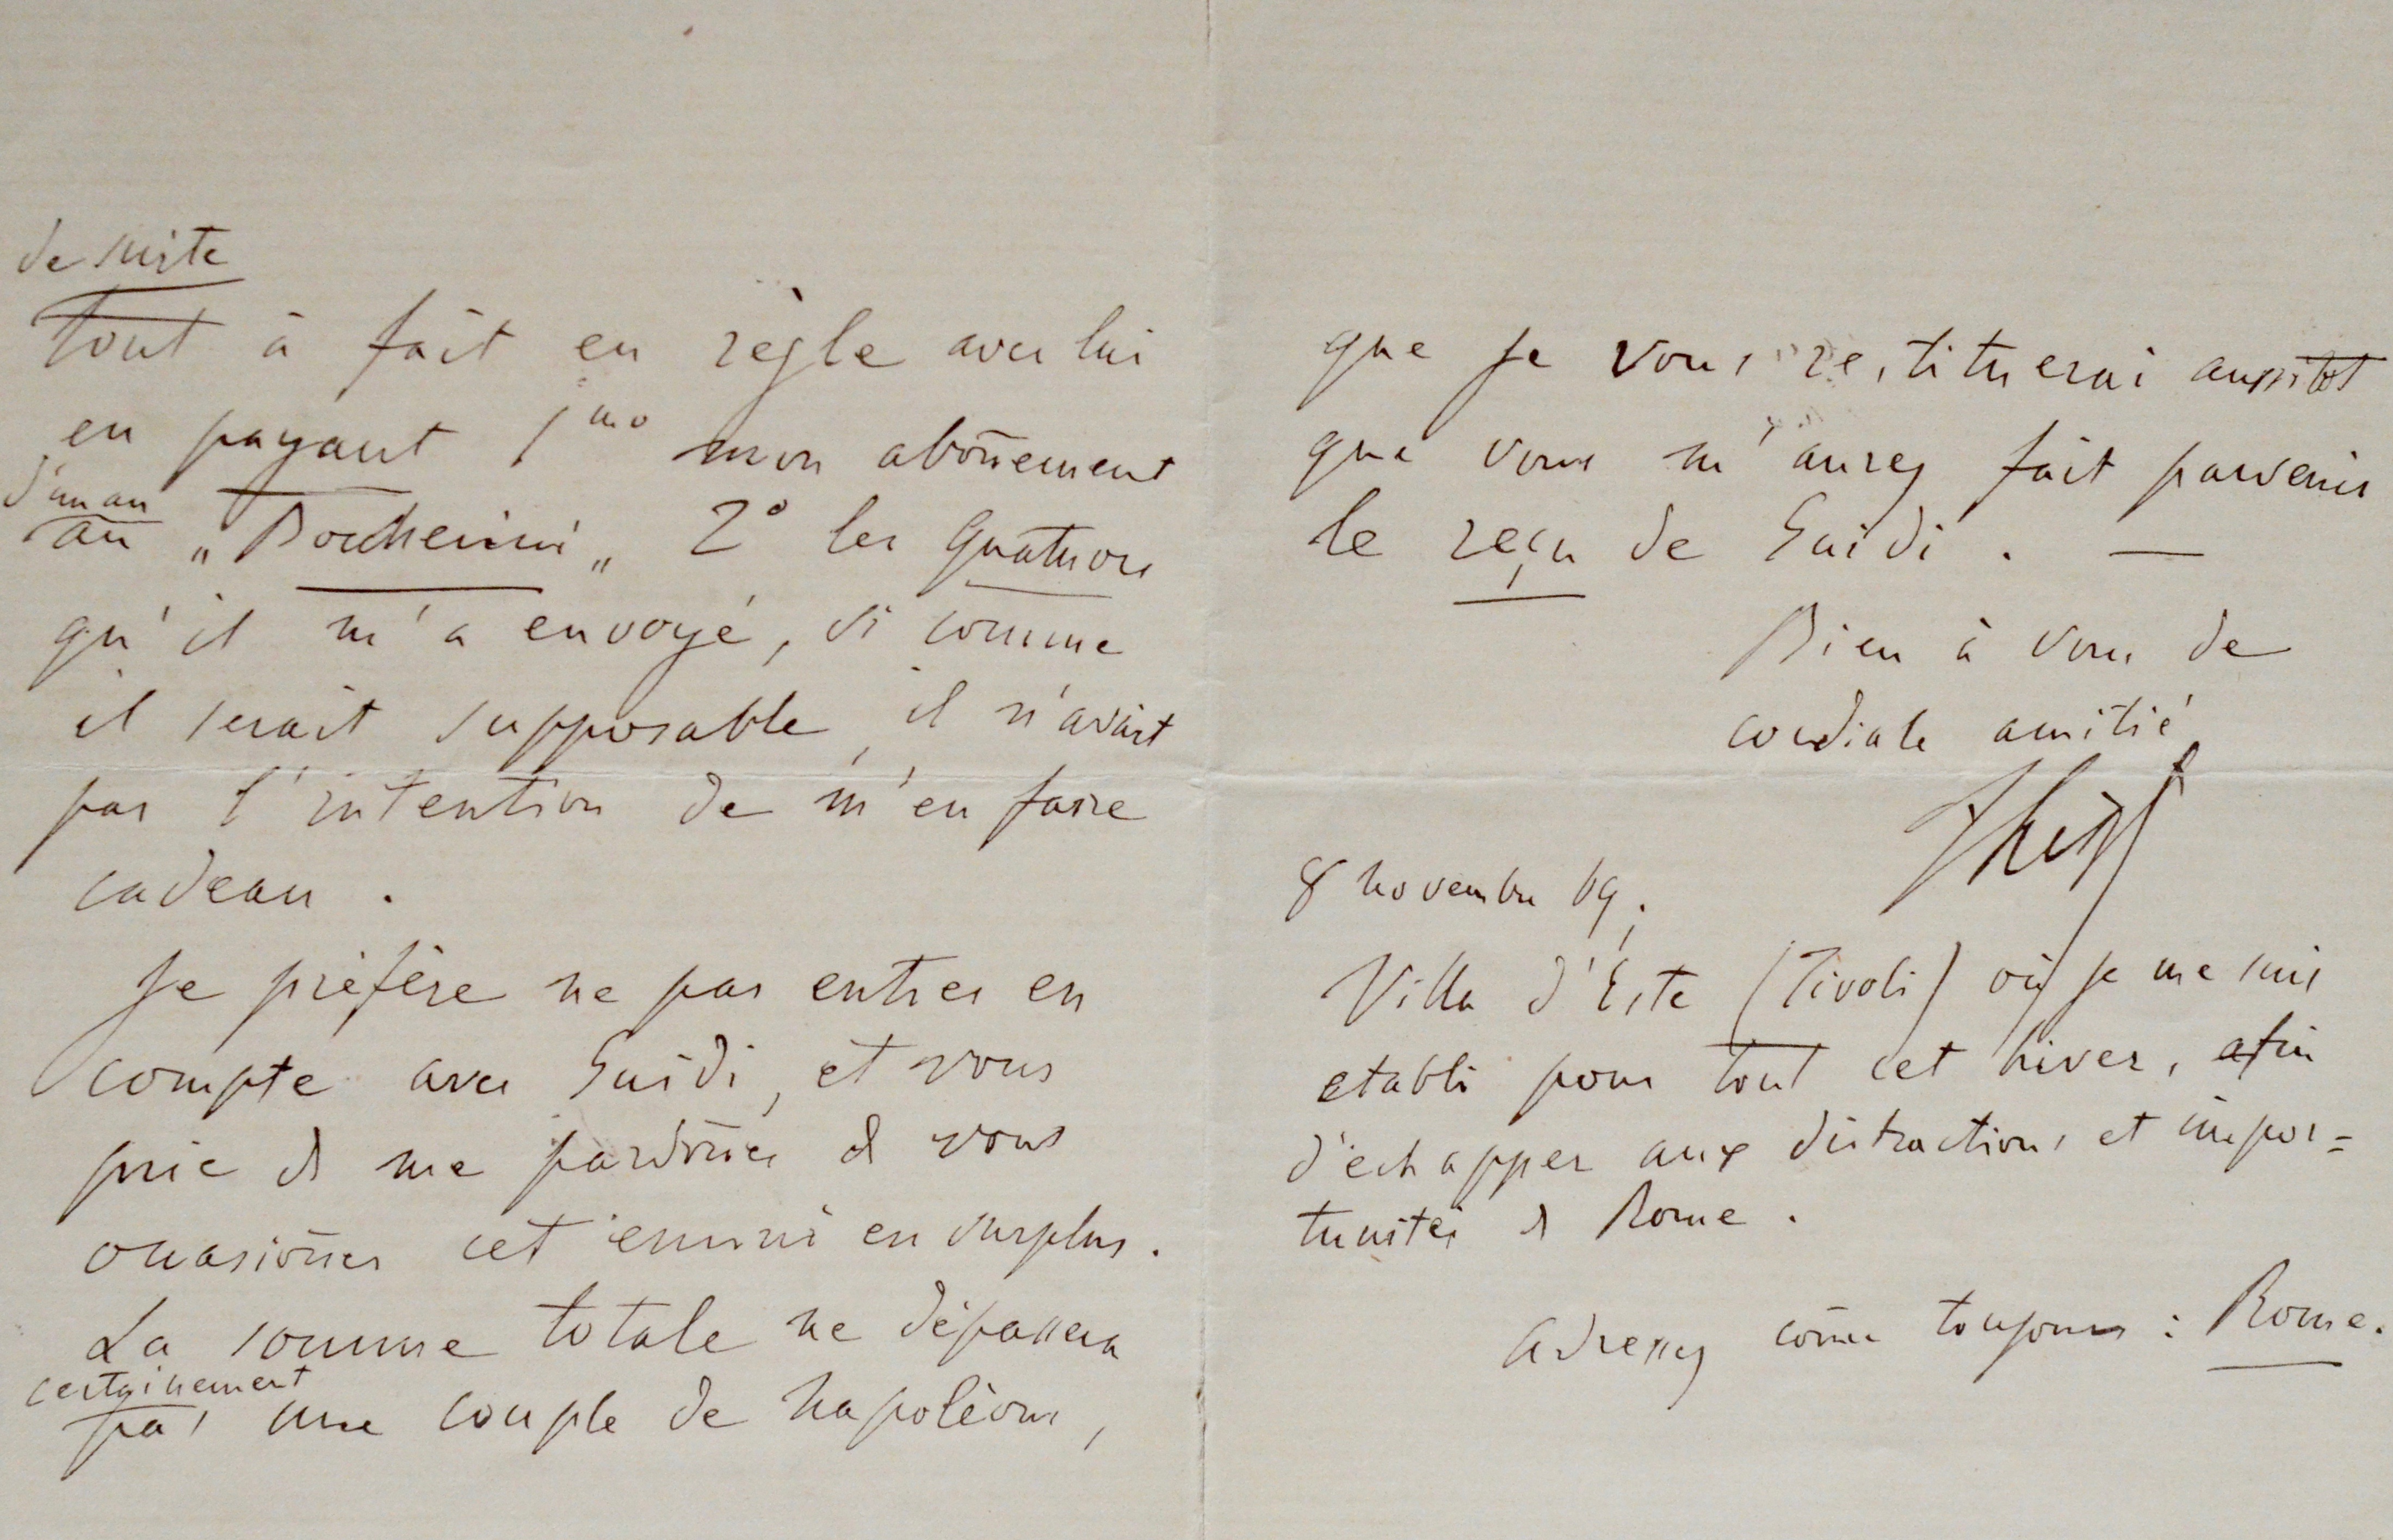 de suite
tout à fait en règle avec lui
en payant 1mo mon abon̄ement
d'un an
au „Boccherini„ 2° les quatuors
qu'il m'a envoyé, si comme
il serait supposable, il n'avait
pas l'intention de m'en faire
cadeau.
Je préfère ne pas entrer en
compte avec Guidi, et vous
prie d me pardōner d vous
occasiōner cet ennui en surplus.
La somme totale ne dépassera
certainement
pas une couple de napoléons,
que je vous restituerai aussitot
que vous m'aurez fait parvenir
le reçu de Guidi. —
Bien à vous de
cordiale amitié
FLiszt
8 novembre 69,
Villa d'Este (Tivoli) où je me suis
etabli pour tout cet hiver, afin
d'échapper aux distractions et impor=
tunités d Rome.
Adressez com̄e toujours : Rome.